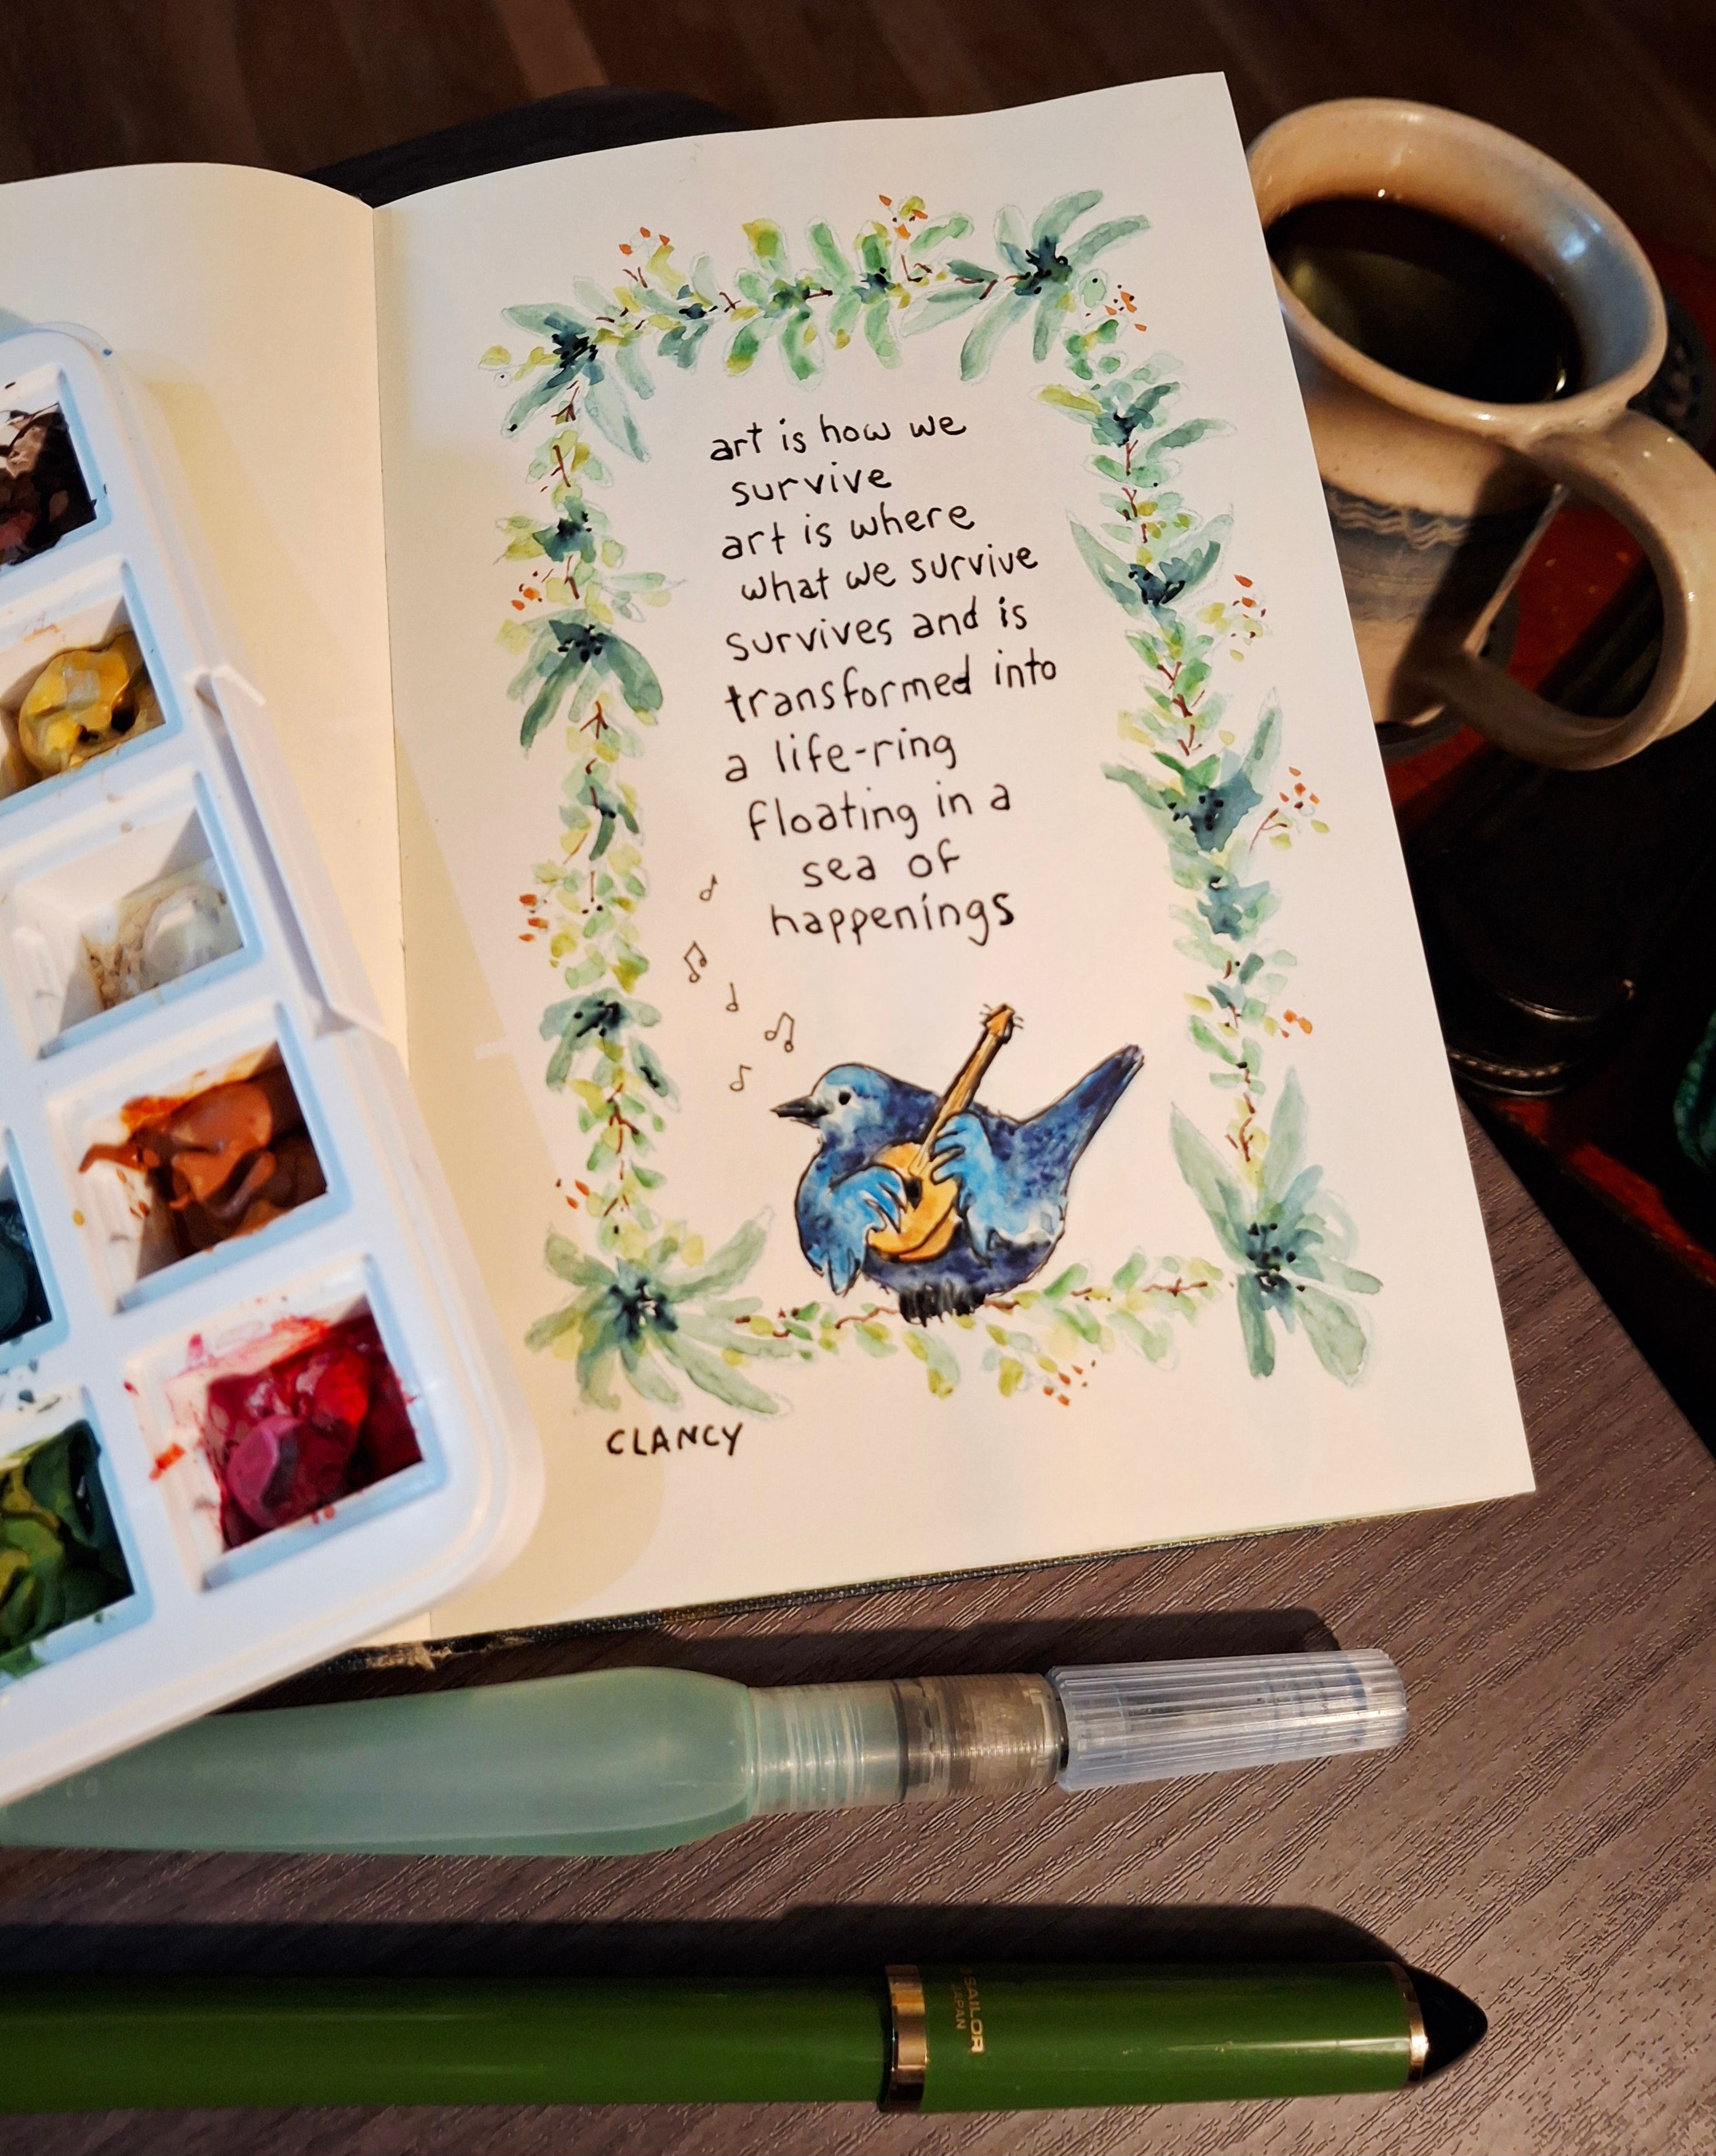 art is how we
survive
art is where
what we survive
survives and is
transformed into
a life-ring
floating in a
sea of
happenings
CLANCY
SAILOR
JAPAN